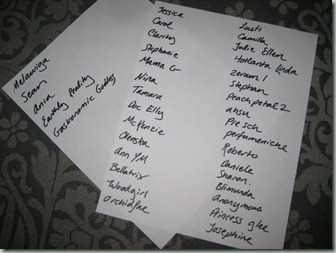 Melawina
Seamy
ania
Earthly Reality
Gastronomic Goddess
Jessica
Carol
Claritzy
Stephanie
Mama G
Nina
Tamara
Doc Elly
McKenzie
Cleostra
Ann YM
Bellatrix
Woodgirl
Orchidfae
Lusti
Camilla
Julie Ellen
Hotlanta Linda
zeram1
Stephan
Peachpetal2
ahsu
Presch
perfumeniche
Roberto
Daniele
Sharon.
Elimunda
anonymous
Princess glee
Josephine